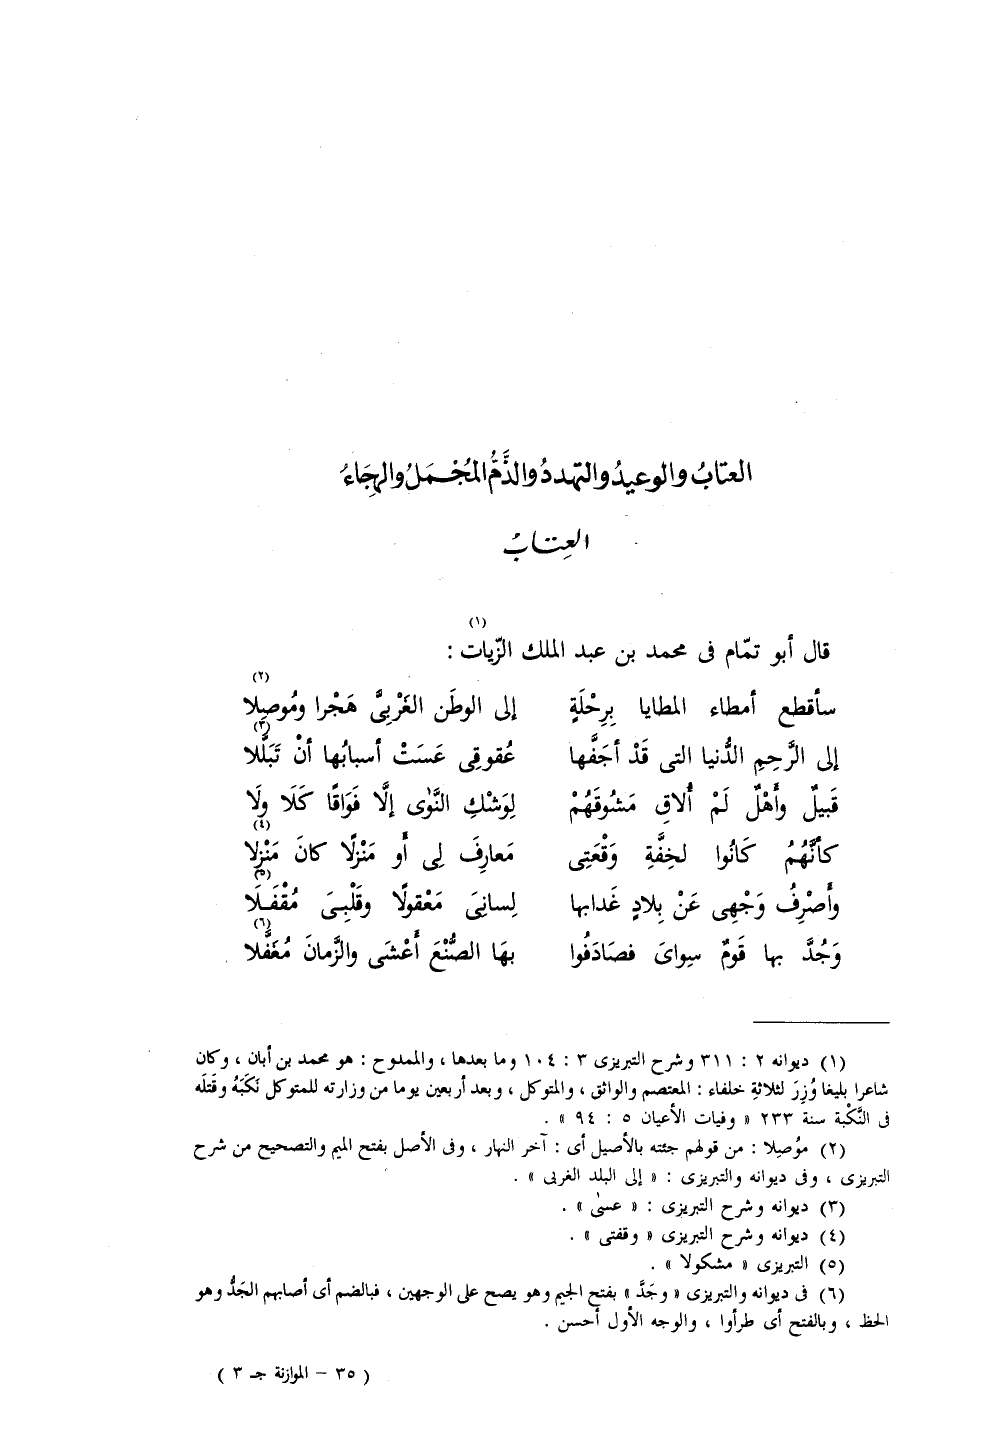 العتابُ والوعيدُ والتهددُ والذَّمُّ المُجْمَلُ والهِجَاءُ
العِتابُ
قال أبو تمّام فى محمد بن عبد الملك الزّيات (١) :
سأقطع أمطاء المطايا بِرِحْلَةٍ إلى الوطَن الغَرْبِىَّ هَجْرا ومُوصِلا (٢)
إلى الرَّحِمِ الدُّنيا التى قَدْ أجَفَّها عُقوقِى عَسَتْ أسبابُها أنْ تَبَلَّلا (٣)
قَبيلٌ وأَهْلٌ لَمْ أُلاقِ مَشُوقَهُمْ لِوَشْكِ النَّوٰى إلَّا فَوَاقًا كَلَا ولَا
كأنَّهُمُ كَانُوا لخِفَّةِ وَقْعَتِى مَعارِفَ لِى أَو مَنْزِلًا كانَ مَنْزِلا (٤)
وأَصْرِفُ وَجْهِى عَنْ بِلادٍ غَدابها لِسانِىَ مَعْقولًا وقَلْبِىَ مُقْفَلَا (٥)
وَجُدَّ بها قَومٌ سِواىَ فصَادَفُوا بهَا الصُّنْعَ أَعْشَى والزَّمانَ مُغَفَّلا (٦)
(١) ديوانه ٢ : ٣١١ وشرح التبريزى ٣ : ١٠٤ وما بعدها ، والممدوح : هو محمد بن أبان ، وكان
شاعرا بليغا وُزِرَ لثلاثةِ خلفاء : المعتصم والواثق ، والمتوكل ، وبعد أربعين يوما من وزارته للمتوكل نَكَبَهُ وقَتَلَه
فى النَّكْبة سنة ٢٣٣ « وفيات الأعيان ٥ : ٩٤ » .
(٢) مُوصِلا : من قولهم جئته بالأصيل أى : آخر النهار ، وفى الأصل بفتح الميم والتصحيح من شرح
التبريزى ، وفى ديوانه والتبريزى : « إلى البلد الغربى » .
(٣) ديوانه وشرح التبريزى : « عسىٰ » .
(٤) ديوانه وشرح التبريزى « وقفتى » .
(٥) التبريزى « مشكولا » .
(٦) فى ديوانه والتبريزى « وجَدَّ » بفتح الجيم وهو يصح على الوجهين ، فبالضم أى أصابهم الجَدُّ وهو
الحظ ، وبالفتح أى طرأوا ، والوجه الأول أحسن .
( ٣٥ – الموازنة جـ ٣ )